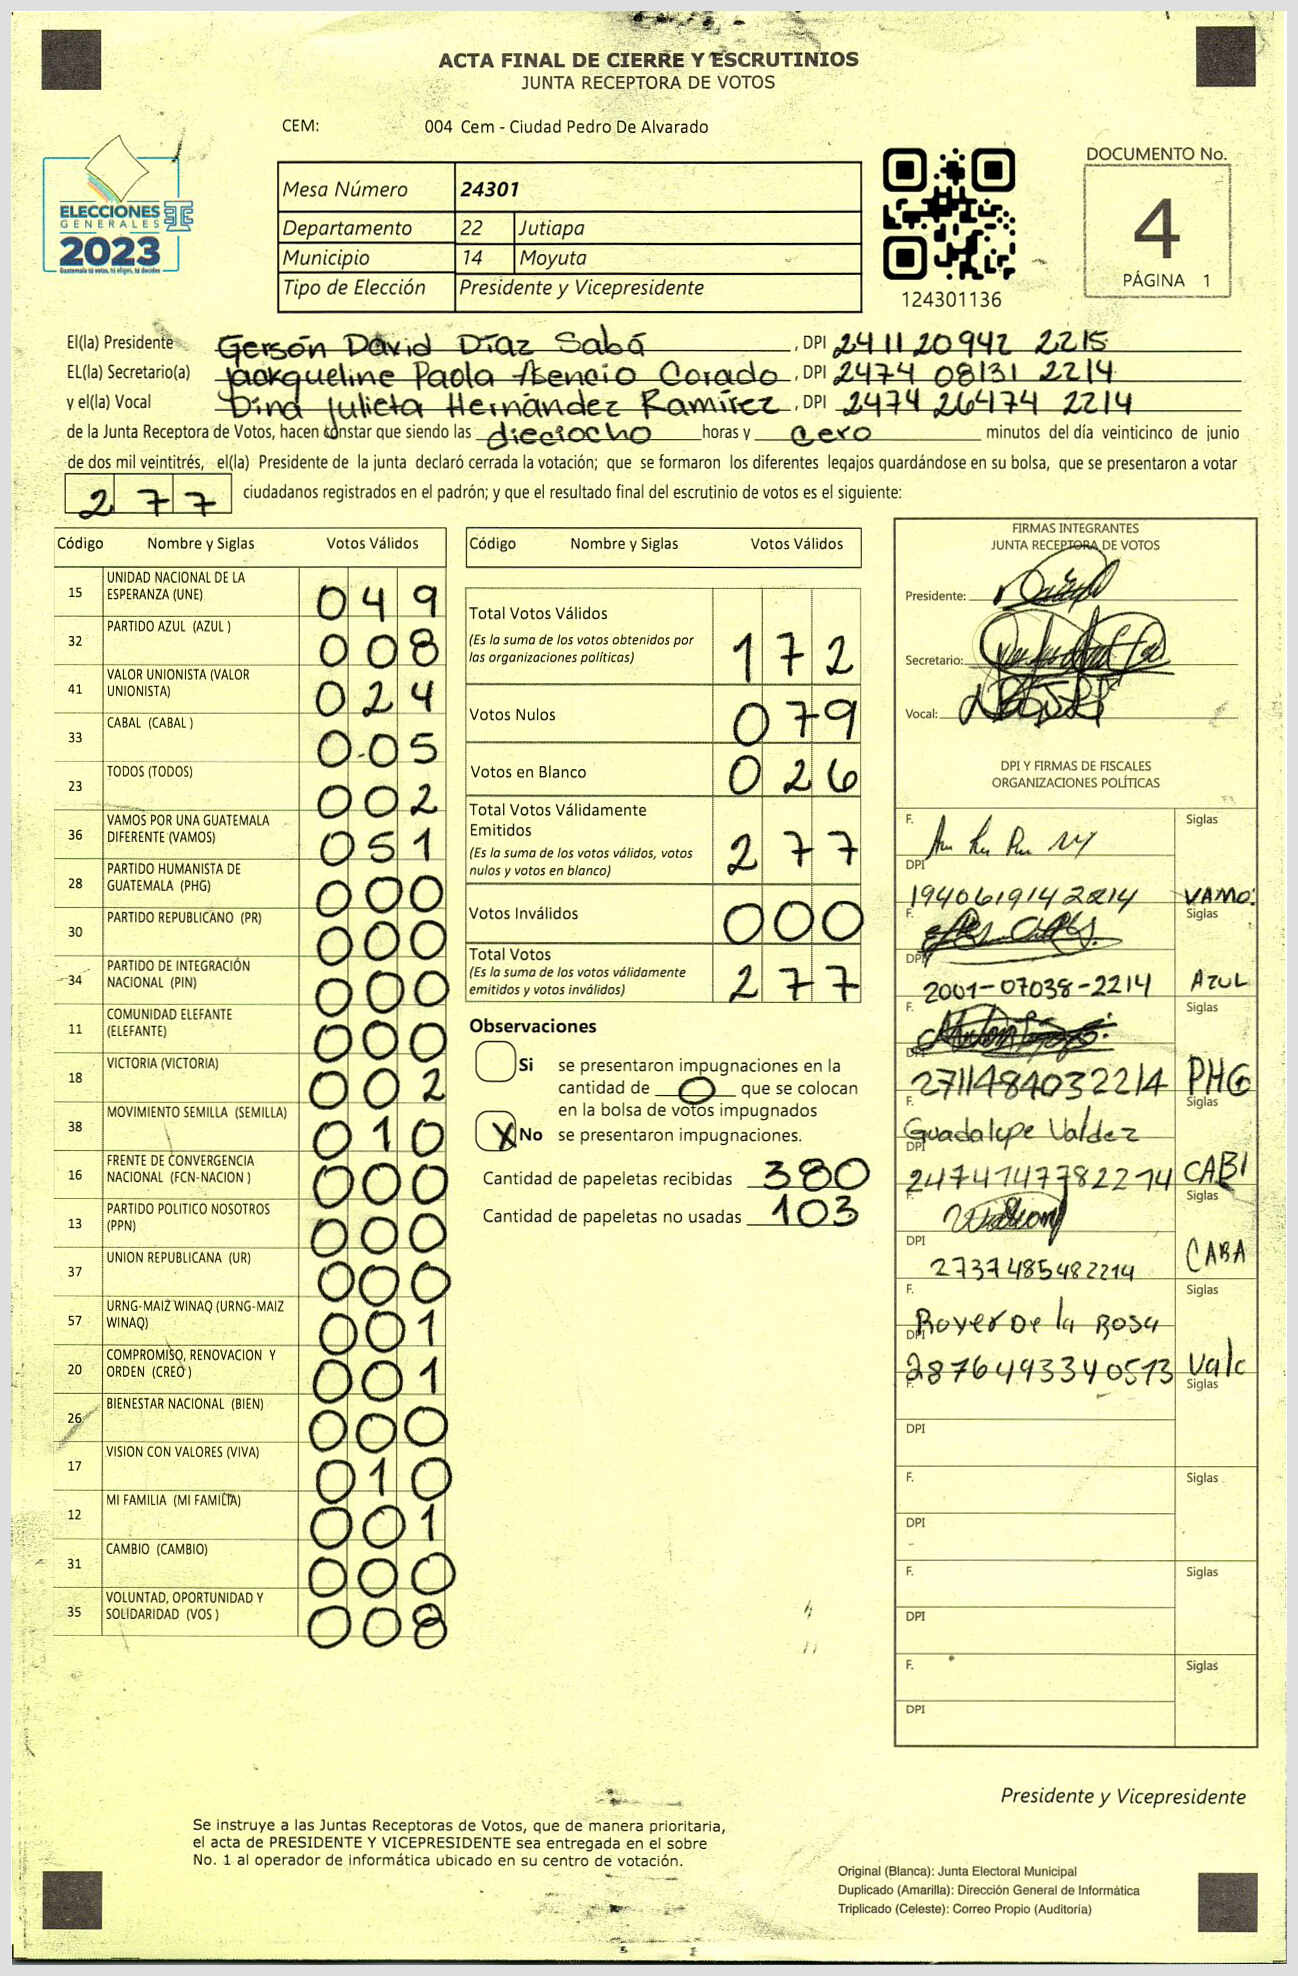 ACTA FINAL DE CIERRE Y ESCRUTINIOS
JUNTA RECEPTORA DE VOTOS
CEM: 004 Cem - Ciudad Pedro De Alvarado
ELECCIONES
GENERALES
2023
Guatemala tú votas, tú eliges, tú decides
Mesa Número 24301
Departamento 22 Jutiapa
Municipio 14 Moyuta
Tipo de Elección Presidente y Vicepresidente
124301136
DOCUMENTO No.
4
PÁGINA 1
El(la) Presidente Gersón David Díaz Sabá, DPI 2411 20942 2215
EL(la) Secretario(a) Jackqueline Paola Asencio Corado, DPI 2474 08131 2214
y el(la) Vocal Dina Julieta Hernández Ramírez, DPI 2474 26474 2214
de la Junta Receptora de Votos, hacen constar que siendo las dieciocho horas y cero minutos del día veinticinco de junio
de dos mil veintitrés, el(la) Presidente de la junta declaró cerrada la votación; que se formaron los diferentes legajos quardándose en su bolsa, que se presentaron a votar
277 ciudadanos registrados en el padrón; y que el resultado final del escrutinio de votos es el siguiente:
Código Nombre y Siglas Votos Válidos
15 UNIDAD NACIONAL DE LA ESPERANZA (UNE) 049
32 PARTIDO AZUL (AZUL ) 008
41 VALOR UNIONISTA (VALOR UNIONISTA) 024
33 CABAL (CABAL ) 005
23 TODOS (TODOS) 002
36 VAMOS POR UNA GUATEMALA DIFERENTE (VAMOS) 051
28 PARTIDO HUMANISTA DE GUATEMALA (PHG) 000
30 PARTIDO REPUBLICANO (PR) 000
34 PARTIDO DE INTEGRACIÓN NACIONAL (PIN) 000
11 COMUNIDAD ELEFANTE (ELEFANTE) 000
18 VICTORIA (VICTORIA) 002
38 MOVIMIENTO SEMILLA (SEMILLA) 010
16 FRENTE DE CONVERGENCIA NACIONAL (FCN-NACION ) 000
13 PARTIDO POLITICO NOSOTROS (PPN) 000
37 UNION REPUBLICANA (UR) 000
57 URNG-MAIZ WINAQ (URNG-MAIZ WINAQ) 001
20 COMPROMISO, RENOVACION Y ORDEN (CREO ) 001
26 BIENESTAR NACIONAL (BIEN) 000
17 VISION CON VALORES (VIVA) 010
12 MI FAMILIA (MI FAMILIA) 001
31 CAMBIO (CAMBIO) 000
35 VOLUNTAD, OPORTUNIDAD Y SOLIDARIDAD (VOS ) 008
Código Nombre y Siglas Votos Válidos
Total Votos Válidos 172
(Es la suma de los votos obtenidos por
las organizaciones políticas)
Votos Nulos 079
Votos en Blanco 026
Total Votos Válidamente
Emitidos 277
(Es la suma de los votos válidos, votos
nulos y votos en blanco)
Votos Inválidos 000
Total Votos 277
(Es la suma de los votos válidamente
emitidos y votos inválidos)
Observaciones
Si se presentaron impugnaciones en la
cantidad de 0 que se colocan
en la bolsa de votos impugnados
X No se presentaron impugnaciones.
Cantidad de papeletas recibidas 380
Cantidad de papeletas no usadas 103
FIRMAS INTEGRANTES
JUNTA RECEPTORA DE VOTOS
Presidente:
Secretario:
Vocal:
DPI Y FIRMAS DE FISCALES
ORGANIZACIONES POLÍTICAS
F. Siglas
DPI 1940619142214 VAMO:
F. Siglas
DPI 2001-07038-2214 AZUL
F. Siglas
DPI 2711484032214 PHG
F. Guadalupe Valdez Siglas
DPI 2474747782214 CABI
F. Siglas
DPI 2737485482214 CABA
F. Royer De la Rosa Siglas
DPI 2876493340513 Valc
F. Siglas
DPI
F. Siglas
DPI
F. Siglas
DPI
F. Siglas
DPI
Presidente y Vicepresidente
Se instruye a las Juntas Receptoras de Votos, que de manera prioritaria,
el acta de PRESIDENTE Y VICEPRESIDENTE sea entregada en el sobre
No. 1 al operador de informática ubicado en su centro de votación.
Original (Blanca): Junta Electoral Municipal
Duplicado (Amarilla): Dirección General de Informática
Triplicado (Celeste): Correo Propio (Auditoría)